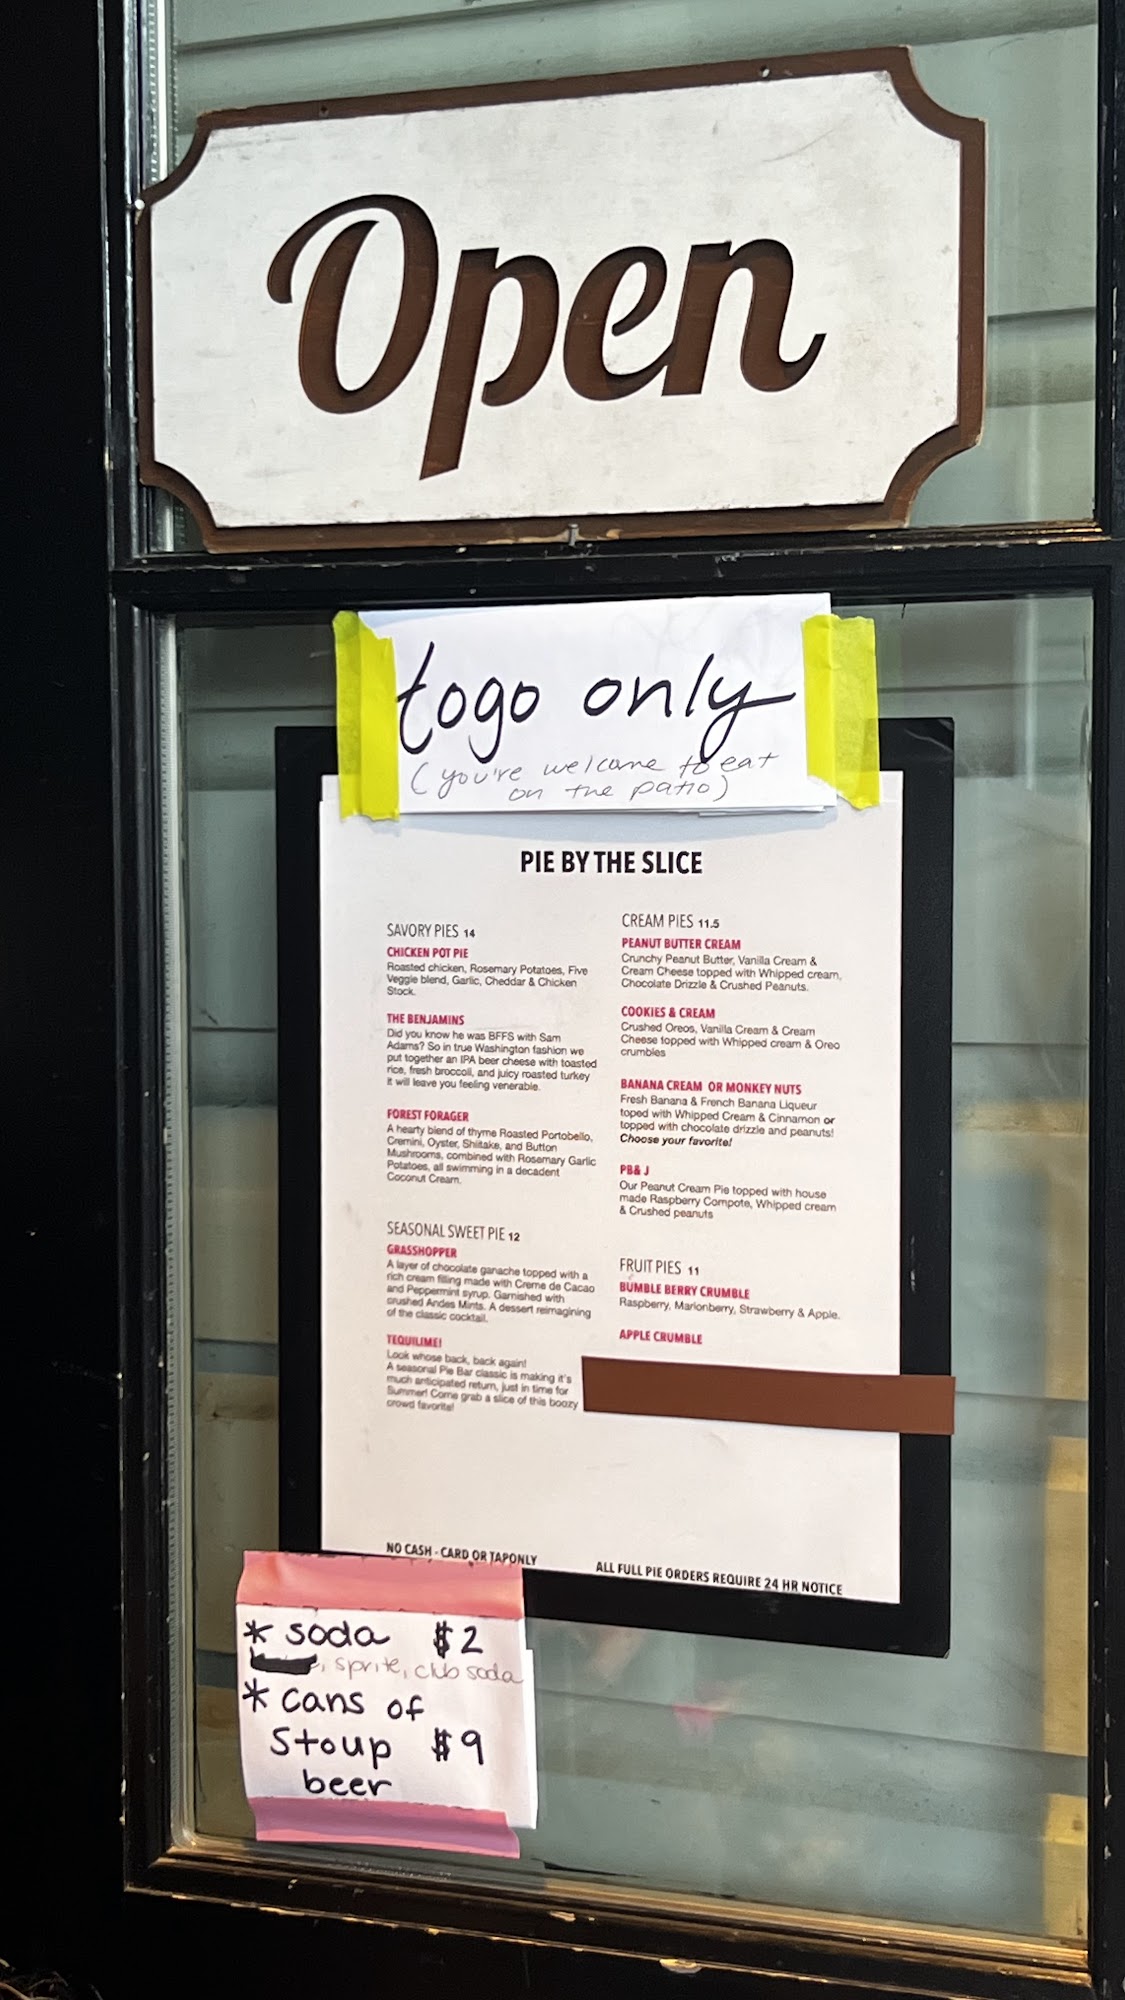 Open
togo only
(you're welcome to eat
on the patio)
PIE BY THE SLICE
SAVORY PIES 14
CHICKEN POT PIE
Roasted chicken, Rosemary Potatoes, Five
Veggie blend, Garlic, Cheddar & Chicken
Stock.
THE BENJAMINS
Did you know he was BFFS with Sam
Adams? So in true Washington fashion we
put together an IPA beer cheese with toasted
rice, fresh broccoli, and juicy roasted turkey
it will leave you feeling venerable.
FOREST FORAGER
A hearty blend of thyme Roasted Portobello,
Cremini, Oyster, Shiitake, and Button
Mushrooms, combined with Rosemary Garlic
Potatoes, all swimming in a decadent
Coconut Cream.
SEASONAL SWEET PIE 12
GRASSHOPPER
A layer of chocolate ganache topped with a
rich cream filling made with Creme de Cacao
and Peppermint syrup. Garnished with
crushed Andes Mints. A dessert reimagining
of the classic cocktail.
TEQUILIME!
Look whose back, back again!
A seasonal Pie Bar classic is making it's
much anticipated return, just in time for
Summer! Come grab a slice of this boozy
crowd favorite!
CREAM PIES 11.5
PEANUT BUTTER CREAM
Crunchy Peanut Butter, Vanilla Cream &
Cream Cheese topped with Whipped cream,
Chocolate Drizzle & Crushed Peanuts.
COOKIES & CREAM
Crushed Oreos, Vanilla Cream & Cream
Cheese topped with Whipped cream & Oreo
crumbles
BANANA CREAM OR MONKEY NUTS
Fresh Banana & French Banana Liqueur
toped with Whipped Cream & Cinnamon or
topped with chocolate drizzle and peanuts!
Choose your favorite!
PB& J
Our Peanut Cream Pie topped with house
made Raspberry Compote, Whipped cream
& Crushed peanuts
FRUIT PIES 11
BUMBLE BERRY CRUMBLE
Raspberry, Marionberry, Strawberry & Apple.
APPLE CRUMBLE
NO CASH - CARD OR TAPONLY
ALL FULL PIE ORDERS REQUIRE 24 HR NOTICE
* soda $2
, sprite, club soda
* cans of
Stoup $9
beer